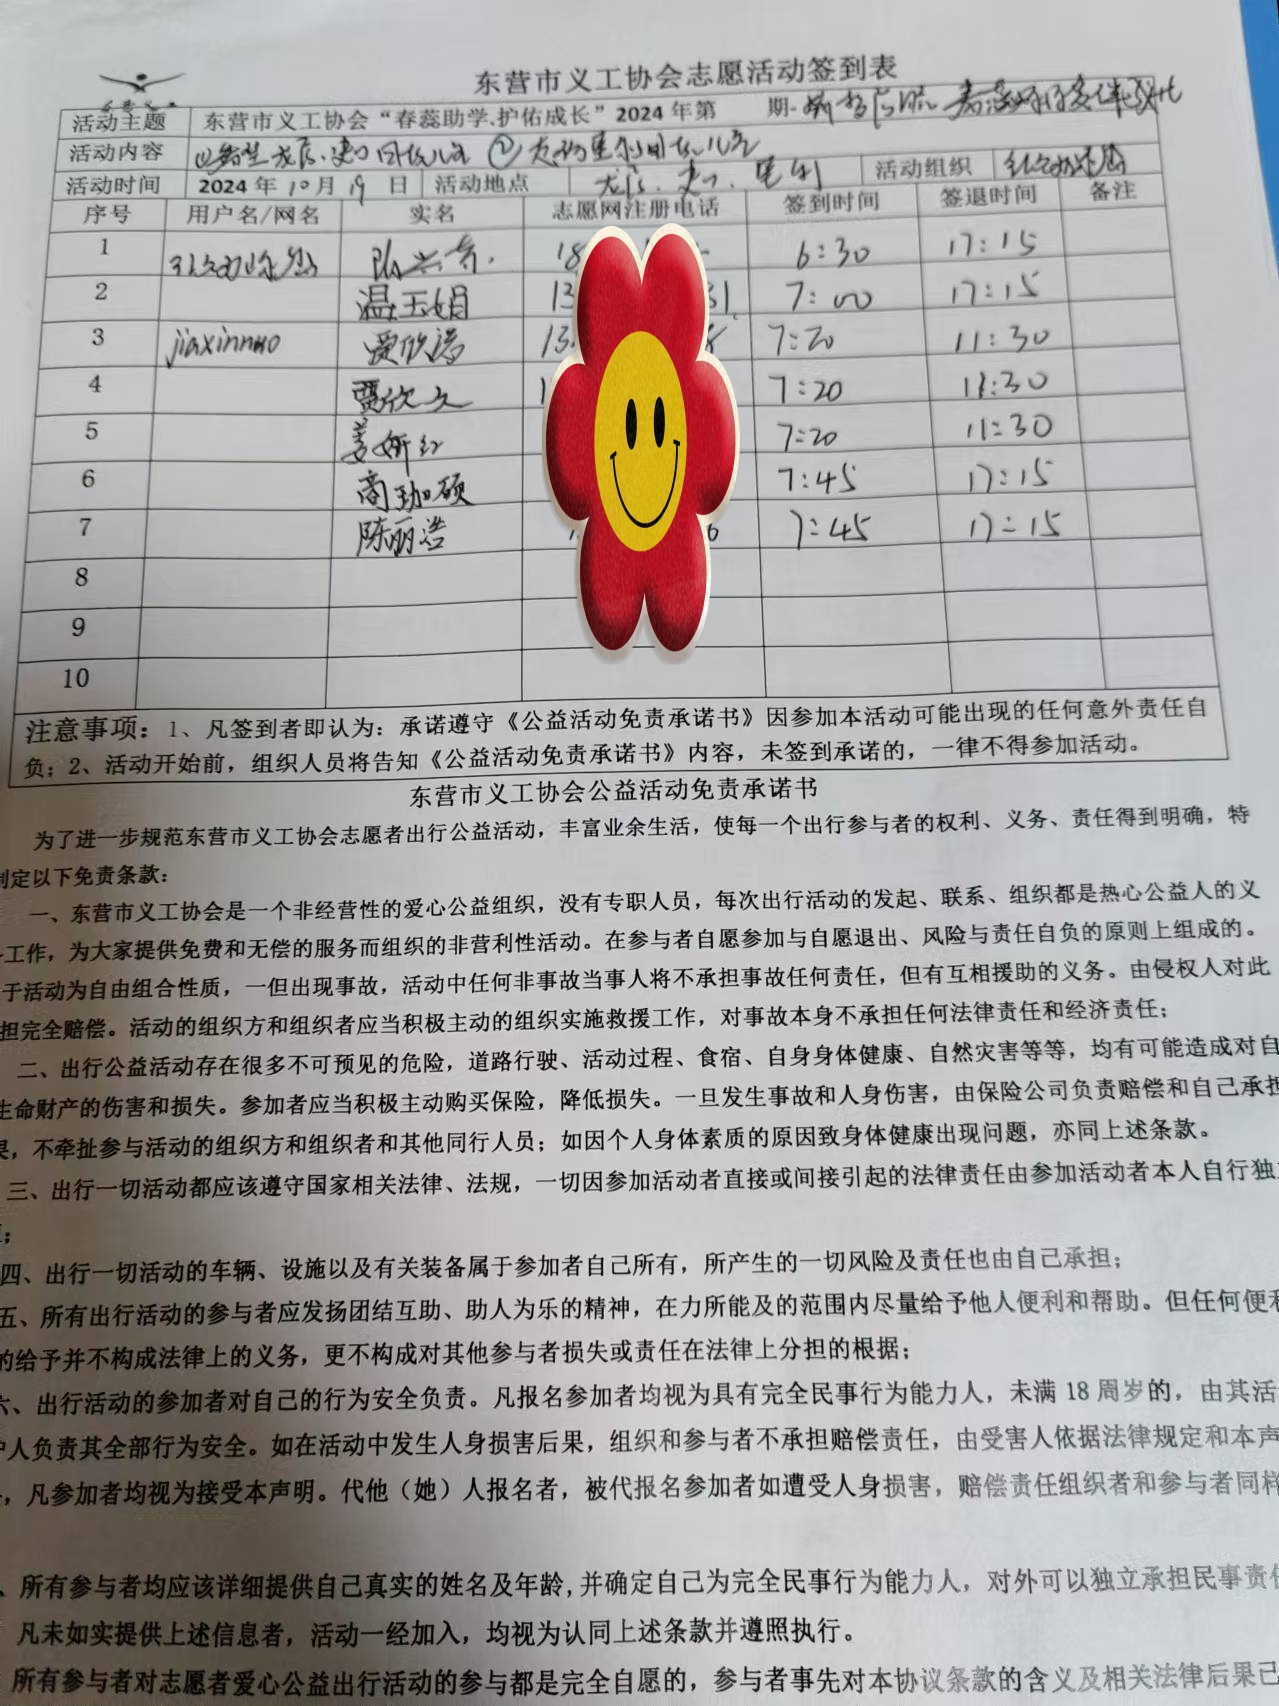 东营市义工协会志愿活动签到表
活动主题 东营市义工协会“春蕊助学.护佑成长”2024 年第 期-
活动内容
活动时间 2024 年 10 月 19 日 活动地点 活动组织
序号 用户名/网名 实名 志愿网注册电话 签到时间 签退时间 备注
1 6:30 17:15
2 温玉娟 13 31. 7:00 17:15
3 jiaxinnuo 贾欣诺 13 7:20 11:30
4 贾欣文 7:20 11:30
5 姜妍红 7:20 11:30
6 商珈硕 7:45 17:15
7 陈丽浩 6 7:45 17:15
8
9
10
注意事项:1、凡签到者即认为:承诺遵守《公益活动免责承诺书》因参加本活动可能出现的任何意外责任自
负;2、活动开始前,组织人员将告知《公益活动免责承诺书》内容,未签到承诺的,一律不得参加活动。
东营市义工协会公益活动免责承诺书
为了进一步规范东营市义工协会志愿者出行公益活动,丰富业余生活,使每一个出行参与者的权利、义务、责任得到明确,特
制定以下免责条款:
一、东营市义工协会是一个非经营性的爱心公益组织,没有专职人员,每次出行活动的发起、联系、组织都是热心公益人的义
工作,为大家提供免费和无偿的服务而组织的非营利性活动。在参与者自愿参加与自愿退出、风险与责任自负的原则上组成的。
于活动为自由组合性质,一但出现事故,活动中任何非事故当事人将不承担事故任何责任,但有互相援助的义务。由侵权人对此
担完全赔偿。活动的组织方和组织者应当积极主动的组织实施救援工作,对事故本身不承担任何法律责任和经济责任;
二、出行公益活动存在很多不可预见的危险,道路行驶、活动过程、食宿、自身身体健康、自然灾害等等,均有可能造成对自
生命财产的伤害和损失。参加者应当积极主动购买保险,降低损失。一旦发生事故和人身伤害,由保险公司负责赔偿和自己承担
果,不牵扯参与活动的组织方和组织者和其他同行人员;如因个人身体素质的原因致身体健康出现问题,亦同上述条款。
三、出行一切活动都应该遵守国家相关法律、法规,一切因参加活动者直接或间接引起的法律责任由参加活动者本人自行独立
;
四、出行一切活动的车辆、设施以及有关装备属于参加者自己所有,所产生的一切风险及责任也由自己承担;
五、所有出行活动的参与者应发扬团结互助、助人为乐的精神,在力所能及的范围内尽量给予他人便利和帮助。但任何便利
的给予并不构成法律上的义务,更不构成对其他参与者损失或责任在法律上分担的根据;
六、出行活动的参加者对自己的行为安全负责。凡报名参加者均视为具有完全民事行为能力人,未满 18 周岁的,由其活
护人负责其全部行为安全。如在活动中发生人身损害后果,组织和参与者不承担赔偿责任,由受害人依据法律规定和本声
,凡参加者均视为接受本声明。代他(她)人报名者,被代报名参加者如遭受人身损害,赔偿责任组织者和参与者同样
、所有参与者均应该详细提供自己真实的姓名及年龄,并确定自己为完全民事行为能力人,对外可以独立承担民事责任
凡未如实提供上述信息者,活动一经加入,均视为认同上述条款并遵照执行。
所有参与者对志愿者爱心公益出行活动的参与都是完全自愿的,参与者事先对本协议条款的含义及相关法律后果已